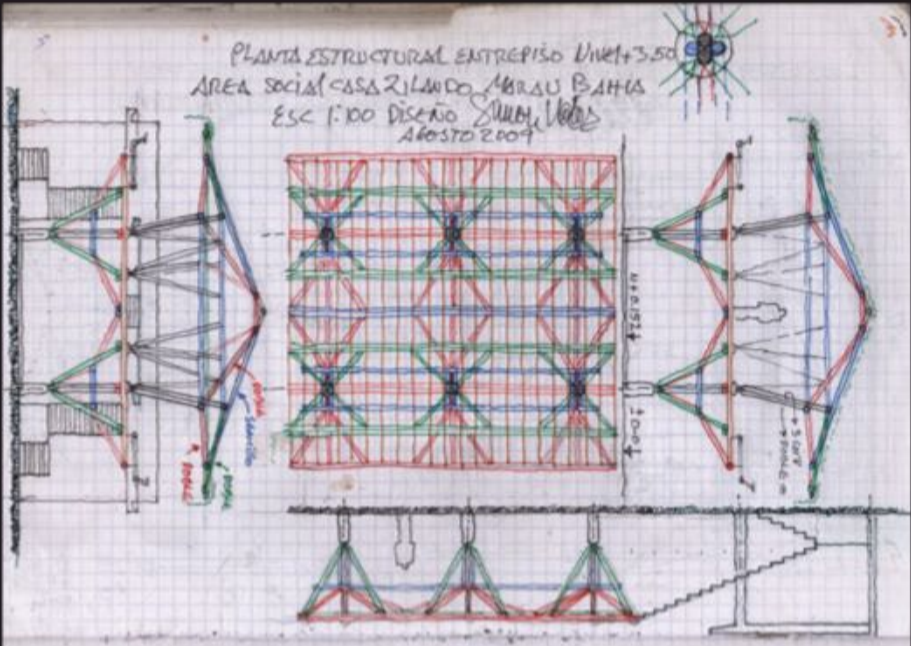 PLANTA ESTRUCTURAL ENTREPISO Nivel+3,50
AREA SOCIAL CASA ZILANDO MARAU BAHIA
ESC 1:100 DISEÑO Simon Velez
AGOSTO 2009
DOBLE
SENCILLO
DOBLE
DOBLE
N+0.152
±0.0